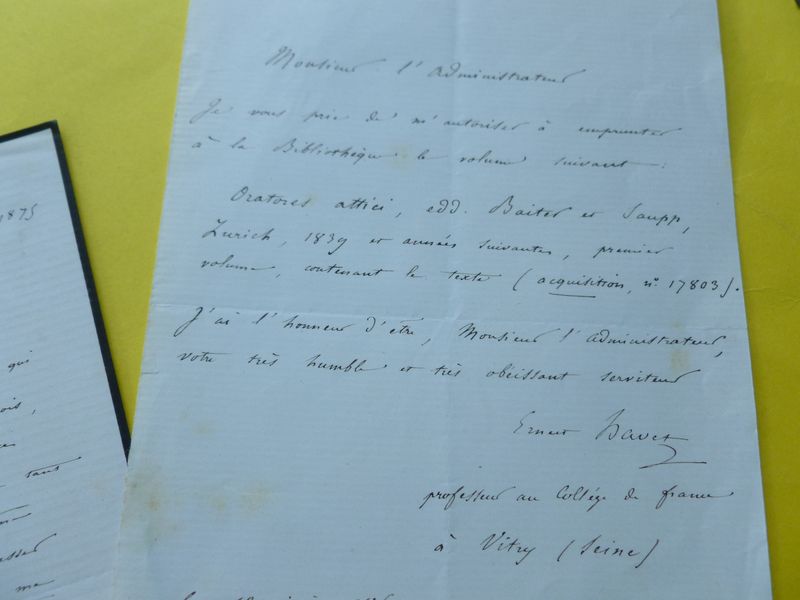 Monsieur l'administrateur
Je vous prie de m'autoriser à emprunter
à la Bibliothèque le volume suivant :
Oratores attici, edd. Baiter et Saupp,
Zurich, 1839 et années suivantes, premier
volume, contenant le texte (acquisition, n° 17803).
J'ai l'honneur d'être, Monsieur l'administrateur,
votre très humble et très obéissant serviteur
Ernest Havet
professeur au Collége de france
à Vitry (Seine)
1875
qui
tant
me